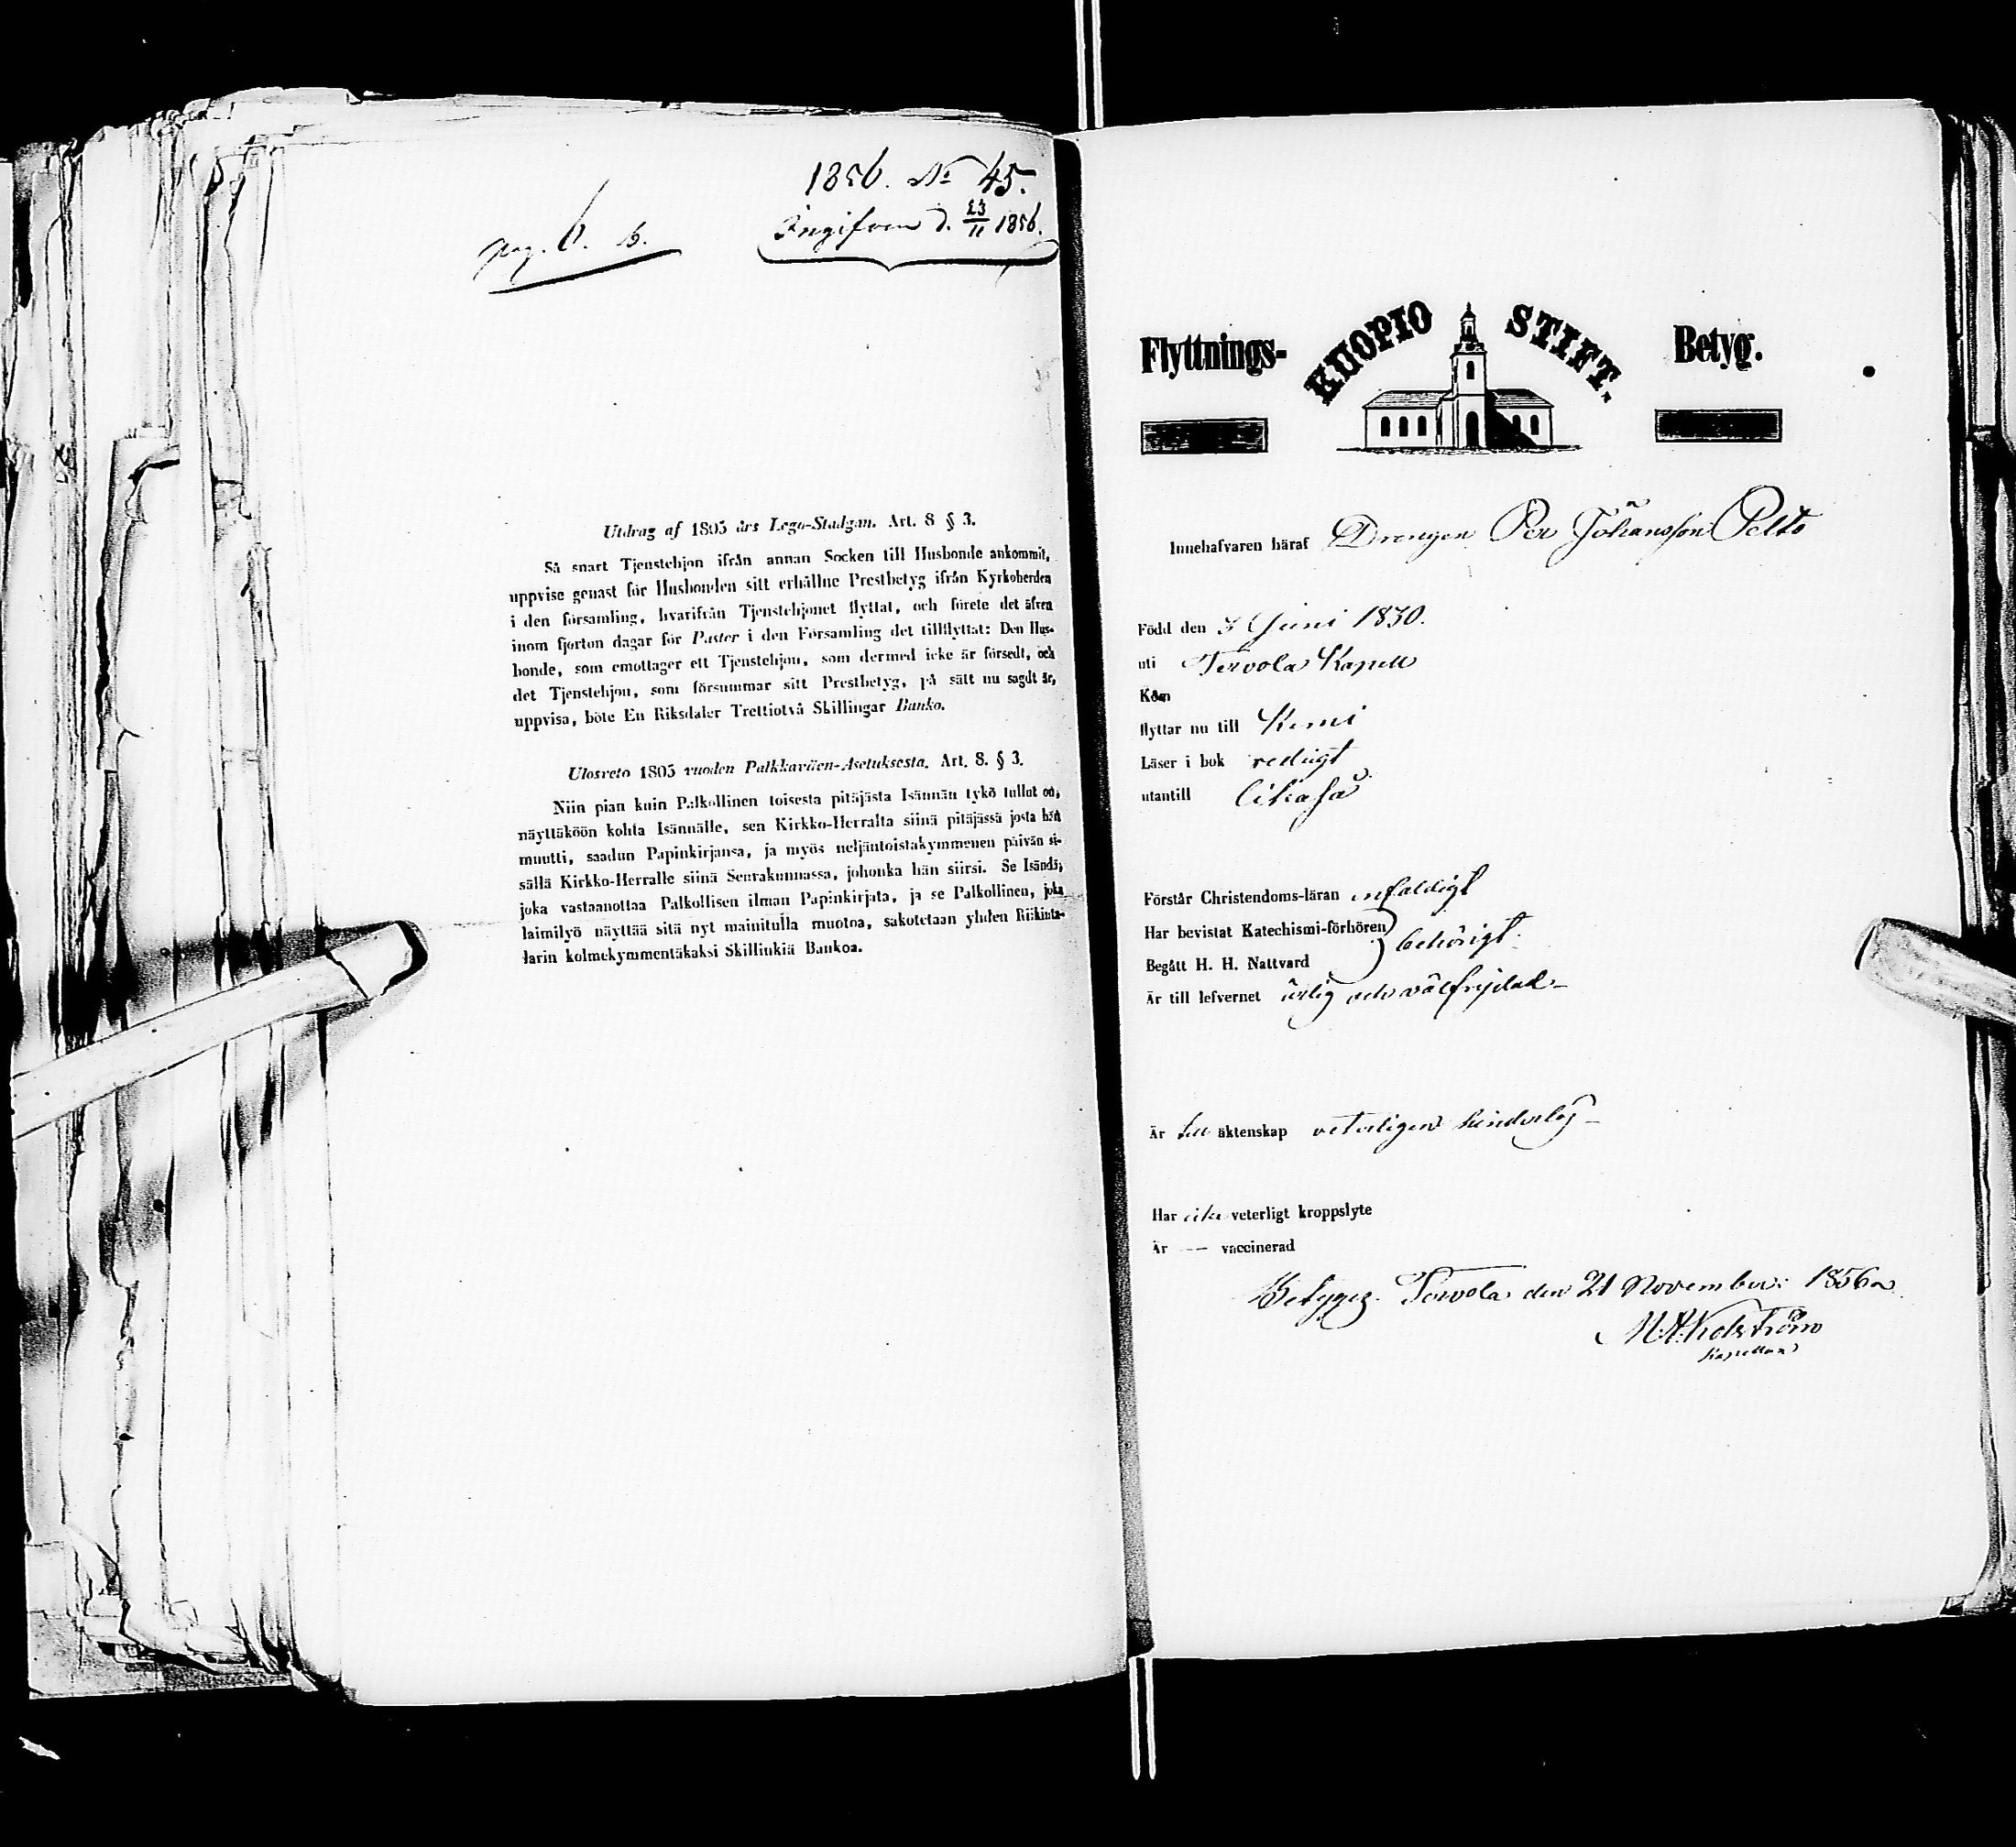 1856. No 45.
Ingifven d. 23/11 1856.
pag. 6. b.
Utdrag af 1805 års Lego-Stadgan. Art. 8 § 3.
Så snart Tjenstehjon ifrån annan Socken till Husbonde ankommit,
uppvise genast för Husbonden sitt erhållne Prestbetyg ifrån Kyrkoherden
i den församling, hvarifrån Tjenstehjonet flyttat, och förete det äfven
inom fjorton dagar för Pastor i den Församling det tillflyttat: Den Hus-
bonde, som emottager ett Tjenstehjon, som dermed icke är försedt, och
det Tjenstehjon, som försummar sitt Prestbetyg, på sätt nu sagdt är,
uppvisa, böte En Riksdaler Trettiotvå Skillingar Banko.
Ulosveto 1805 vuoden Palkkaväen-Asetuksesta. Art. 8. § 3.
Niin pian kuin Palkollinen toisesta pitäjästa Isännän tykö tullut on,
näyttäköön kohta Isännälle, sen Kirkko-Herralta siinä pitäjässä josta hän
muutti, saadun Papinkirjansa, ja myös neljäntoistakymmenen päivän si-
sällä Kirkko-Herralle siinä Seurakunnassa, johonka hän siirsi. Se Isändä,
joka vastaanottaa Palkollisen ilman Papinkirjata, ja se Palkollinen, joka
laimilyö näyttää sitä nyt mainitulla muotoa, sakotetaan yhden Riikinta-
larin kolmekymmentäkaksi Skillinkiä Bankoa.
Flyttnings- KUOPIO STIFT. Betyg.
Innehafvaren häraf Drengen Per Johansson Pelto
Född den 3 Juni 1830.
uti Tervola Kapell
Kom
flyttar nu till Kemi
Läser i bok redigt
utantill likaså
Förstår Christendoms-läran enfaldigt
Har bevistat Katechismi-förhören
Begått H. H. Nattvard behörigt
Är till lefvernet ärlig och välfrejdad
Är till äktenskap veterligen hinderlös
Har icke veterligt kroppslyte
Är -- vaccinerad
Betyges Tervola den 21 November 1856
Kapellan